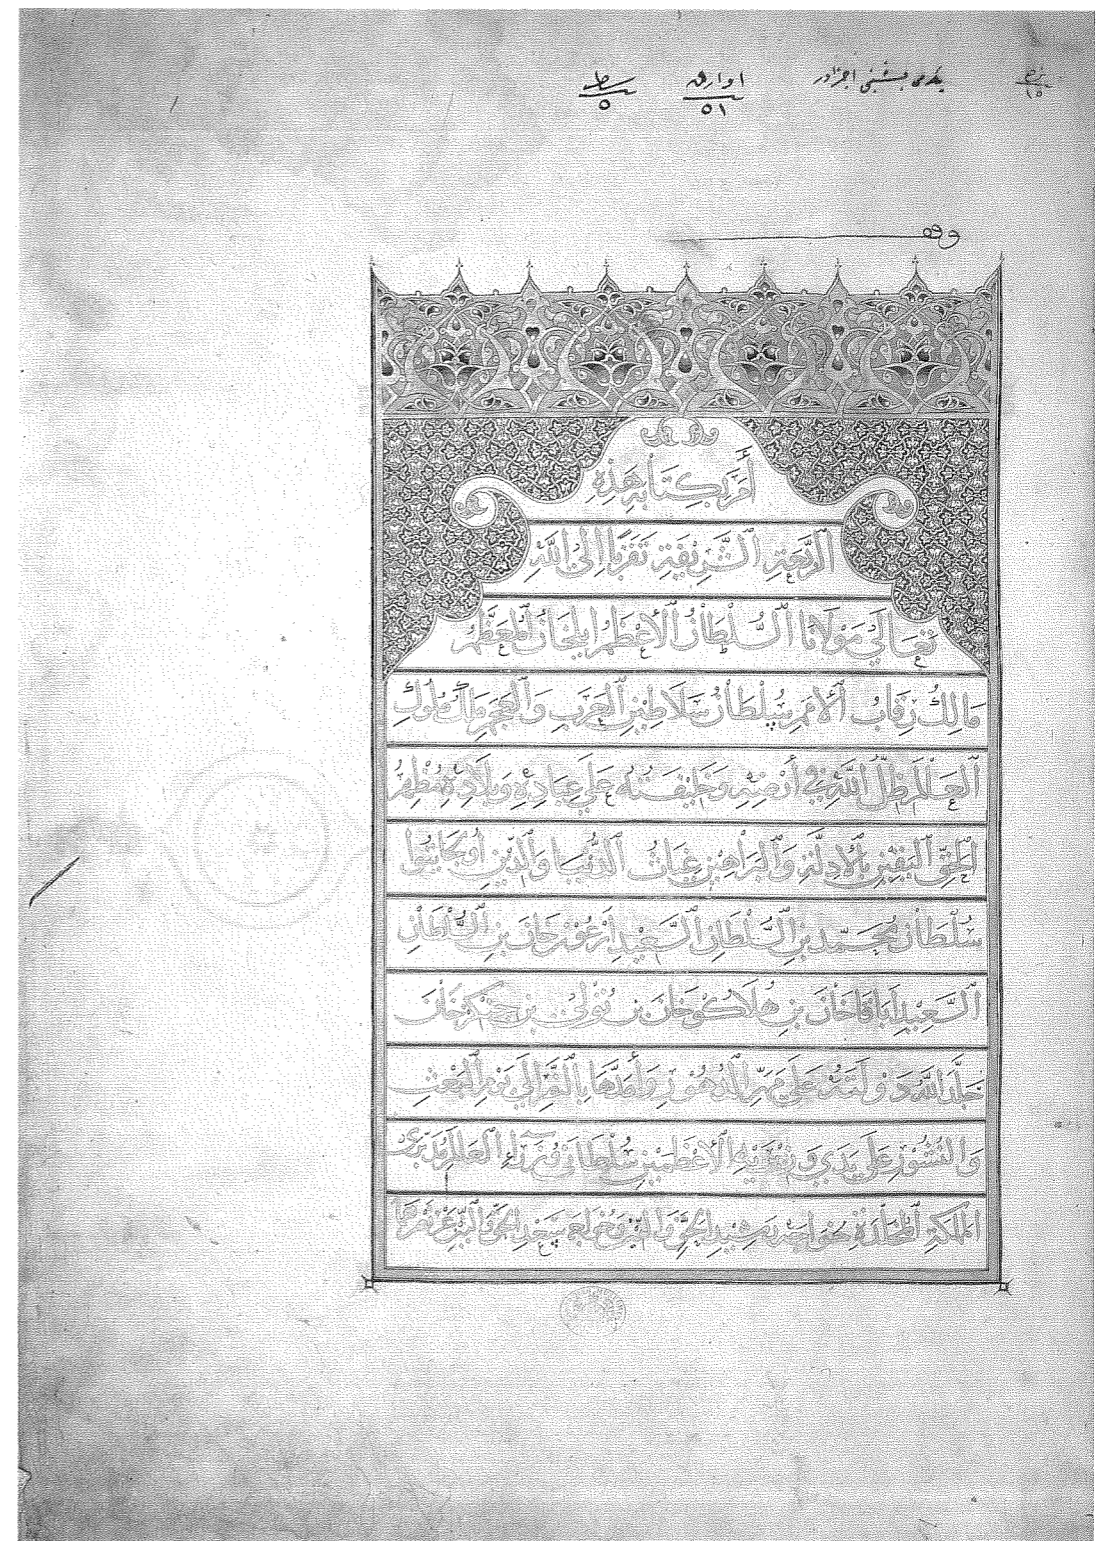 يكرمى بشنجى اجزادر
اوراق ٥١
سطر ٥
وقف
أَمَرَ بِكِتَابَةِ هَذِهِ
الرَّبْعَةِ الشَّرِيفَةِ تَقَرُّبًا إِلَى اللهِ
تَعَالَى مَوْلَانَا السُّلْطَانُ الْأَعْظَمُ إيلخان المُعَظَّمُ
مَالِكُ رِقَابِ الْأُمَمِ سُلْطَانُ سَلَاطِينِ الْعَرَبِ وَالْعَجَمِ مَلِكُ مُلُوكِ
الْعَالَمِ ظِلُّ اللهِ فِي أَرْضِهِ وَخَلِيفَتُهُ عَلَى عِبَادِهِ وَبِلَادِهِ مُظْهِرُ
الْحَقِّ الْيَقِينِ بِالْأَدِلَّةِ وَالْبَرَاهِينِ غِيَاثُ الدُّنْيَا وَالدِّينِ أولجايتو
سُلْطَان مُحَمَّد بْنِ السُّلْطَانِ السَّعِيدِ أَرْغُون خَان بْنِ السُّلْطَانِ
السَّعِيدِ أَبَاقَا خَان بْنِ هُلَاكُو خَان بْنِ تُولِي بْنِ جِنْكِز خَان
خَلَّدَ اللهُ دَوْلَتَهُ عَلَى مَرِّ الدُّهُورِ وَأَمَدَّهَا بِالْعِزِّ إِلَى يَوْمِ الْبَعْثِ
وَالنُّشُورِ عَلَى يَدَي وَزِيرَيْهِ الْأَعْظَمَيْنِ سُلْطَانَي وُزَرَاءِ الْعَالَمِ مُدَبِّرَي
الْمَمْلَكَةِ الْخَالِدَةِ خواجه رَشِيدِ الْحَقِّ وَالدِّينِ وَخواجه سَعْدِ الْحَقِّ وَالدِّينِ